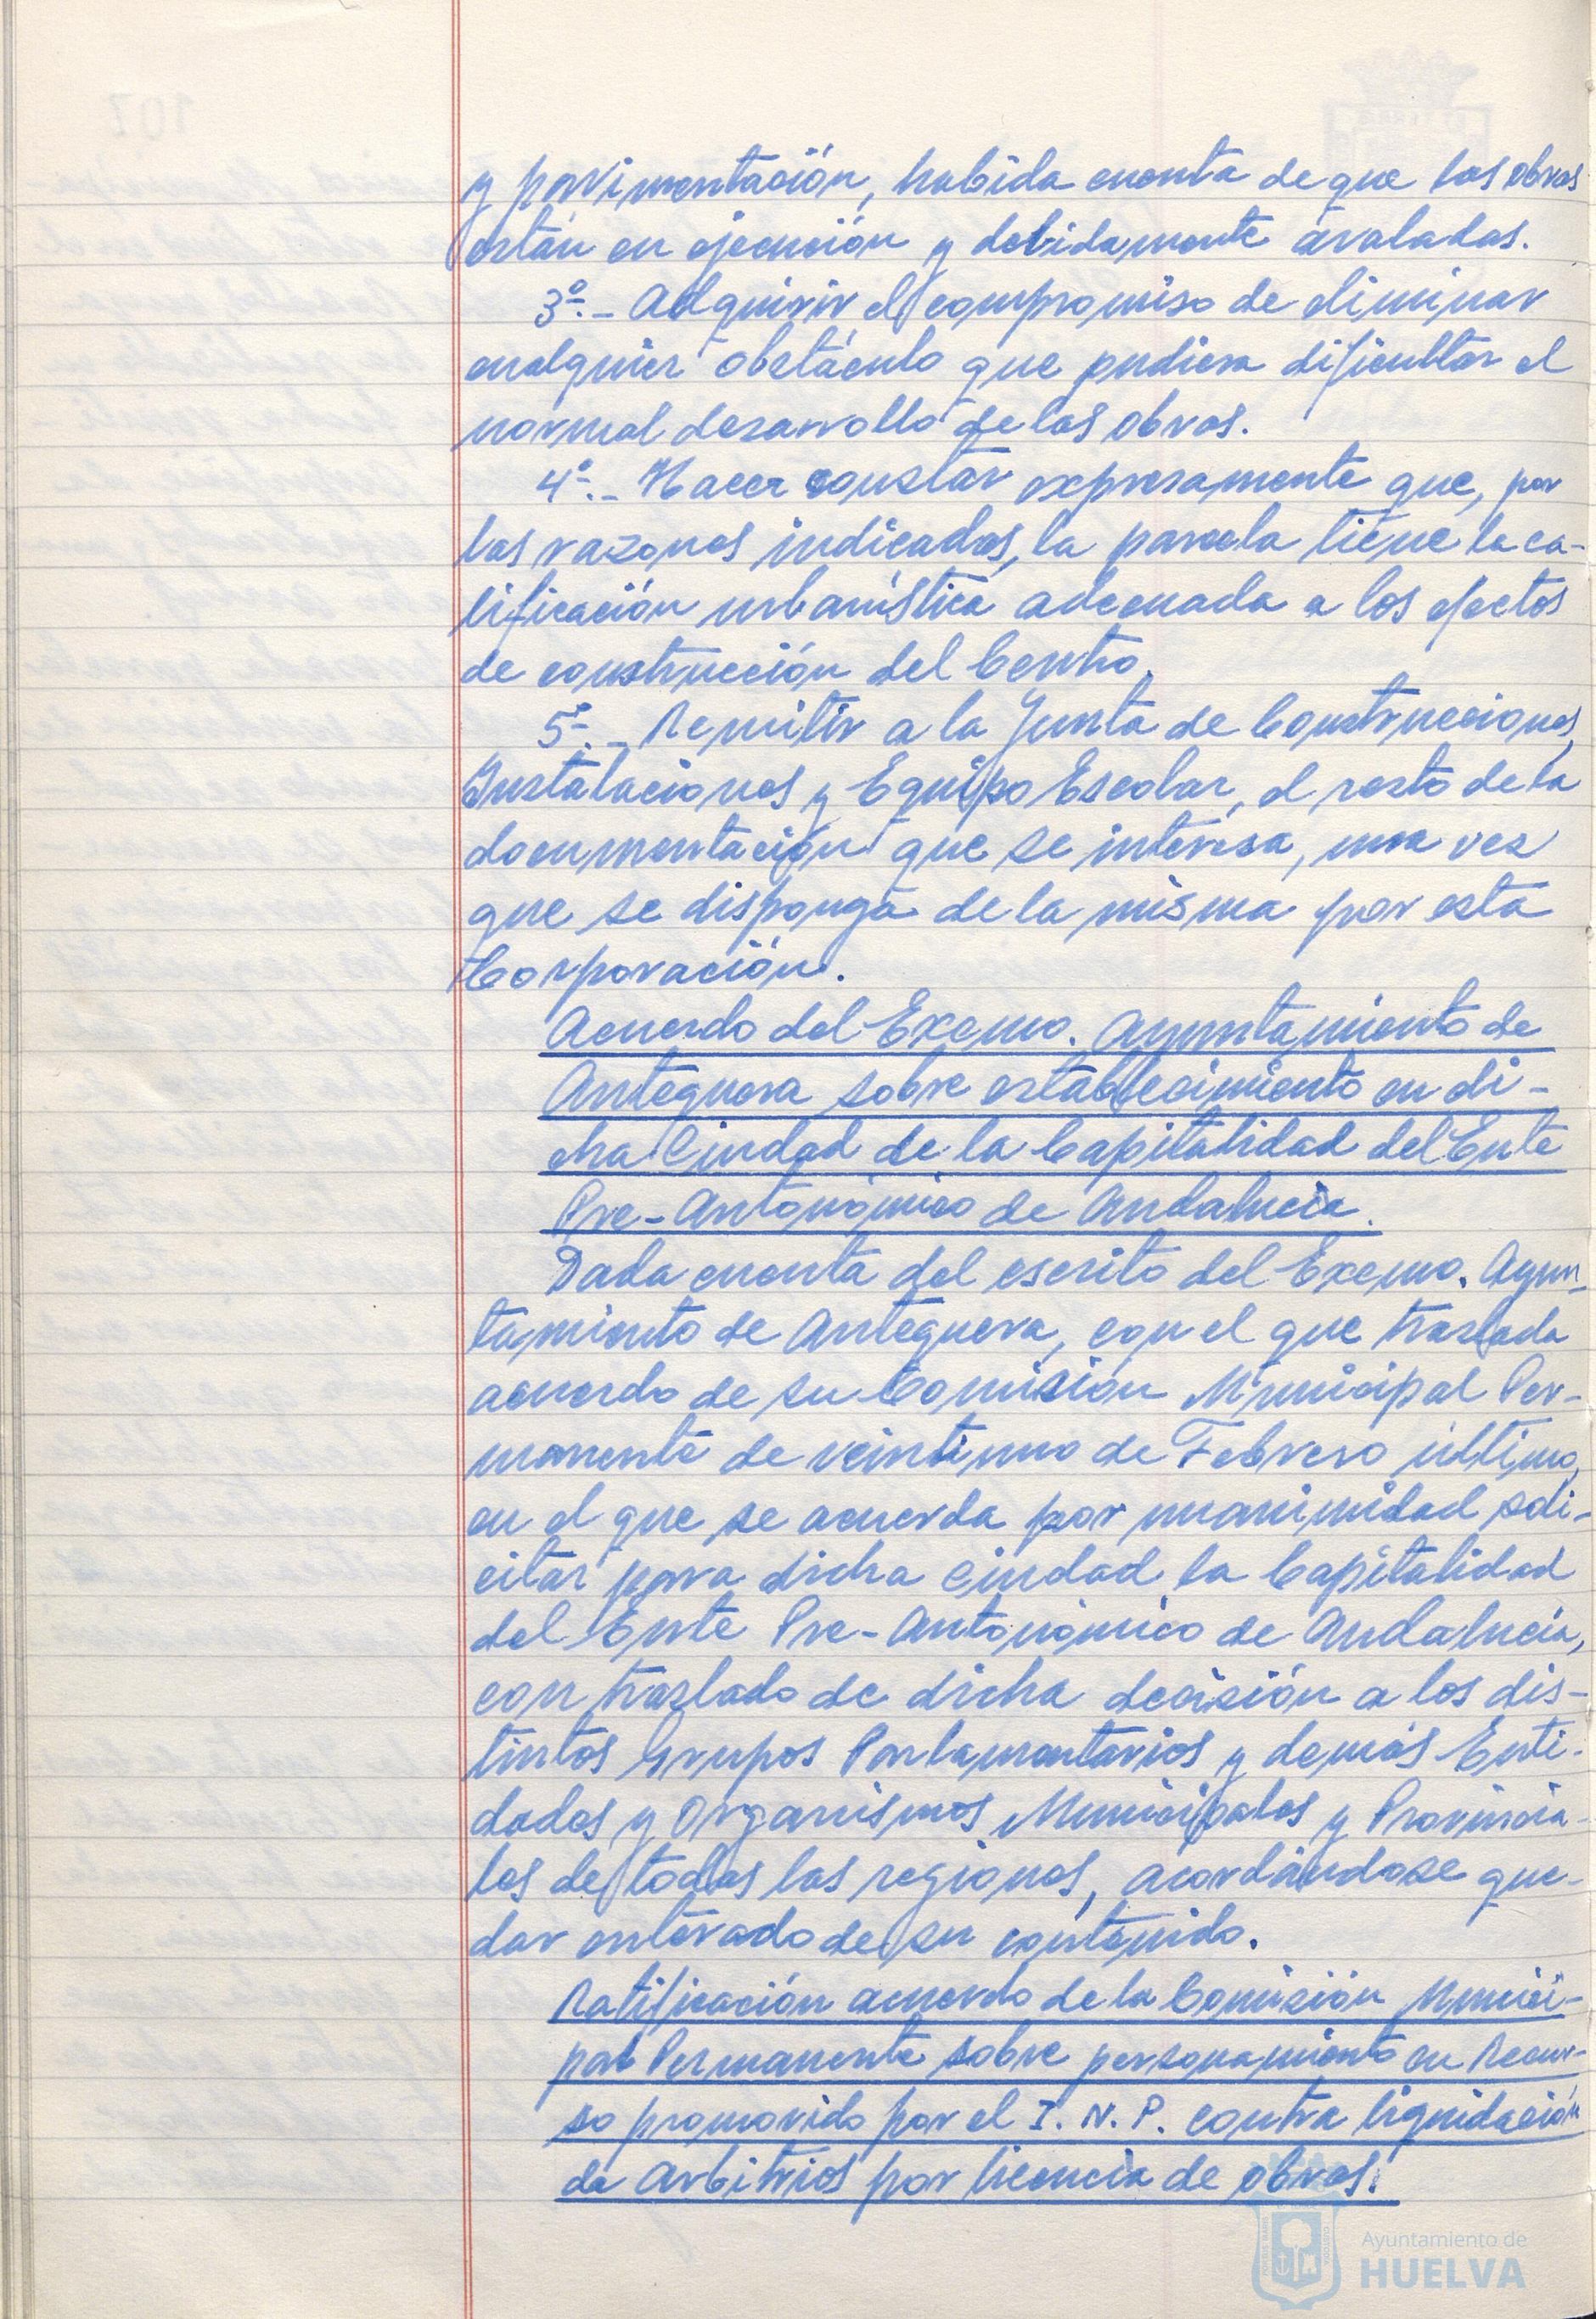 y pavimentación, habida cuenta de que las obras
están en ejecución y debidamente avaladas.
3º.- Adquirir el compromiso de eliminar
cualquier obstáculo que pudiera dificultar el
normal desarrollo de las obras.
4º.- Hacer constar expresamente que, por
las razones indicadas, la parcela tiene la ca-
lificación urbanística adecuada a los efectos
de construcción del Centro.
5º.- Remitir a la Junta de Construcciones,
Instalaciones y Equipo Escolar, el resto de la
documentación que se interesa, una vez
que se disponga de la misma por esta
Corporación.
Acuerdo del Excmo. Ayuntamiento de
Antequera sobre establecimiento en di-
cha Ciudad de la Capitalidad del Ente
Pre-Autonómico de Andalucía.
Dada cuenta del escrito del Excmo. Ayun-
tamiento de Antequera, con el que traslada
acuerdo de su Comisión Municipal Per-
manente de veintiuno de Febrero último,
en el que se acuerda por unanimidad soli-
citar para dicha ciudad la Capitalidad
del Ente Pre-Autonómico de Andalucía,
con traslado de dicha decisión a los dis-
tintos Grupos Parlamentarios y demás Enti-
dades y Organismos Municipales y Provincia-
les de todas las regiones, acordándose que-
dar enterado de su contenido.
Ratificación acuerdo de la Comisión Munici-
pal Permanente sobre personamiento en Recur-
so promovido por el I. N. P. contra liquidación
de Arbitrios por licencia de obras.
Ayuntamiento de
HUELVA